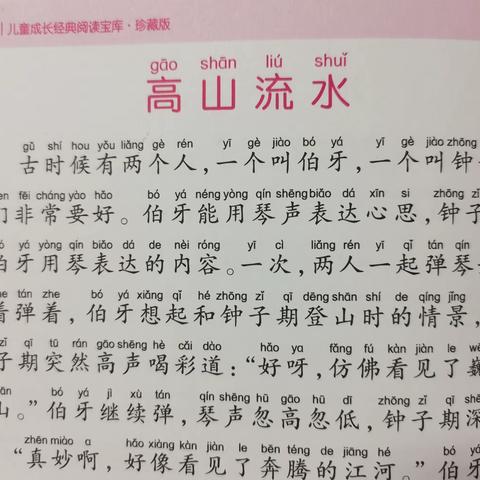 儿童成长经典阅读宝库·珍藏版
gāo shān liú shuǐ
高山流水
gǔ shí hou yǒu liǎng gè rén yī gè jiào bó yá yī gè jiào zhōng
古时候有两个人，一个叫伯牙，一个叫钟
fēi cháng yào hǎo bó yá néng yòng qín shēng biǎo dá xīn si zhōng zǐ
们非常要好。伯牙能用琴声表达心思，钟子
yá yòng qín biǎo dá de nèi róng yī cì liǎng rén yī qǐ tán qín
伯牙用琴表达的内容。一次，两人一起弹琴
zhe tán zhe bó yá xiǎng qǐ hé zhōng zǐ qī dēng shān shí de qíng jǐng
着弹着，伯牙想起和钟子期登山时的情景，
qī tū rán gāo shēng hè cǎi dào hǎo ya fǎng fú kàn jiàn le
子期突然高声喝彩道：“好呀，仿佛看见了巍
bó yá jì xù tán qín shēng hū gāo hū dī zhōng zǐ qī shēn
山。”伯牙继续弹，琴声忽高忽低，钟子期深
zhēn miào a hǎo xiàng kàn jiàn le bēn téng de jiāng hé bó yá
“真妙啊，好像看见了奔腾的江河。”伯牙